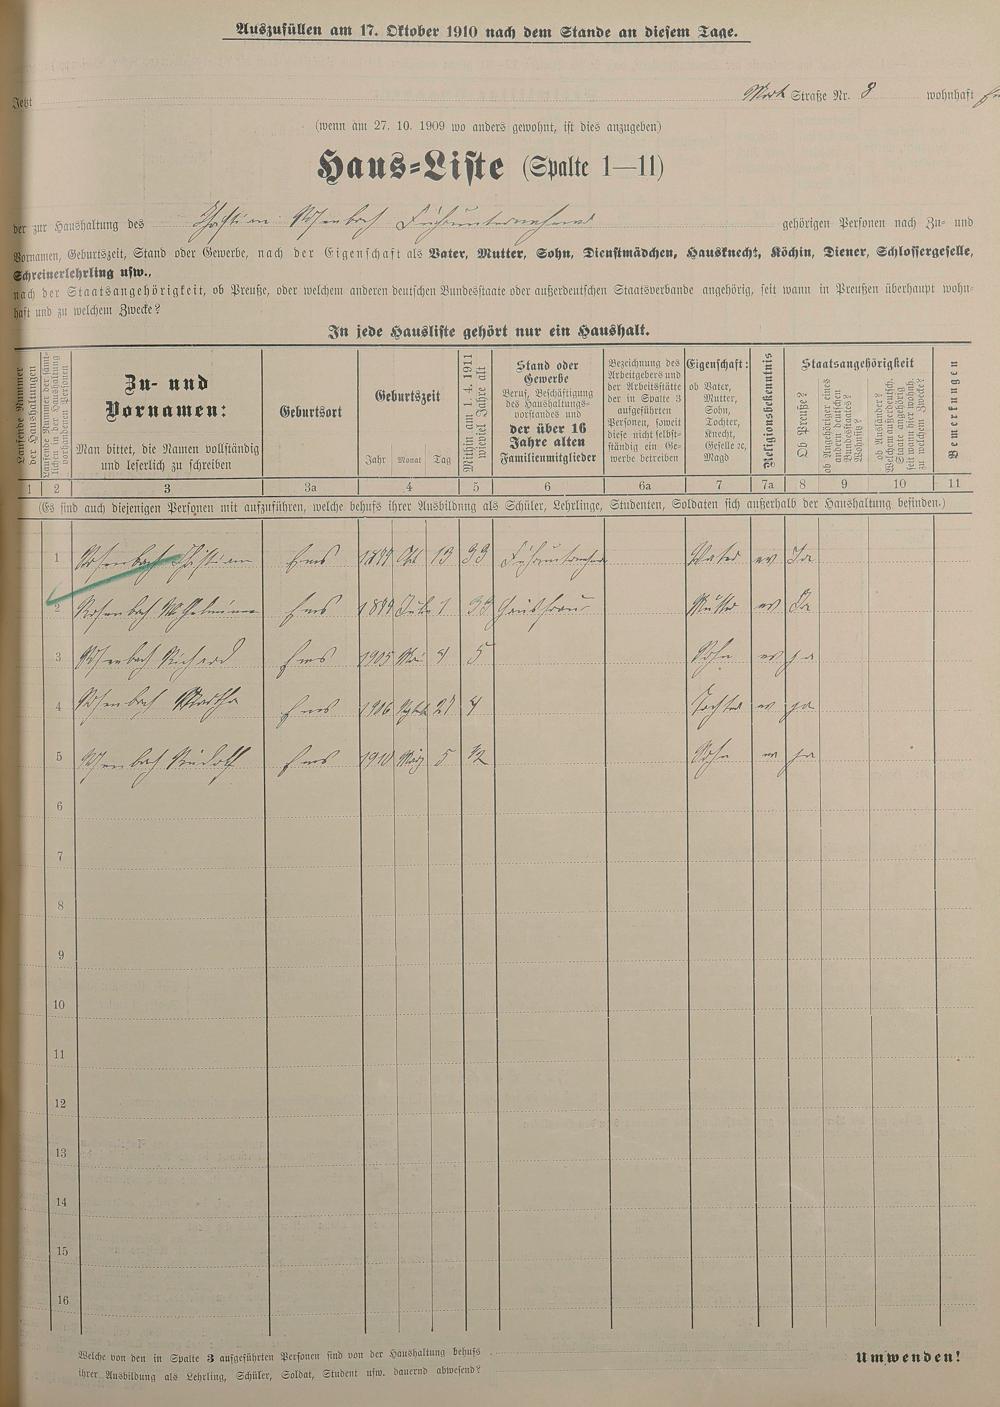 Auszufüllen am 17. Oktober 1910 nach dem Stande an diesem Tage.
Jetzt Straße Nr. 8 wohnhaft
(wenn am 27. 10. 1909 wo anders gewohnt, ist dies anzugeben)
Haus-Liste (Spalte 1—11)
der zur Haushaltung des Rosenbach Fuhrunternehmer gehörigen Personen nach Zu- und
Vornamen, Geburtszeit, Stand oder Gewerbe, nach der Eigenschaft als Vater, Mutter, Sohn, Dienstmädchen, Hausknecht, Köchin, Diener, Schlossergeselle,
Schreinerlehrling usw.,
nach der Staatsangehörigkeit, ob Preuße, oder welchem anderen deutschen Bundesstaate oder außerdeutschen Staatsverbande angehörig, seit wann in Preußen überhaupt wohn-
haft und zu welchem Zwecke?
In jede Hausliste gehört nur ein Haushalt.
Laufende Nummer
der Haushaltungen
Laufende Nummer der sämt-
lichen in der Haushaltung
vorhandenen Personen
Zu- und
Vornamen:
Man bittet, die Namen vollständig
und leserlich zu schreiben
Geburtsort
Geburtszeit
Jahr Monat Tag
Mithin am 1. 4. 1911
wieviel Jahre alt
Stand oder
Gewerbe
Beruf, Beschäftigung
des Haushaltungs-
vorstandes und
der über 16
Jahre alten
Familienmitglieder
Bezeichnung des
Arbeitgebers und
der Arbeitsstätte
der in Spalte 3
aufgeführten
Personen, soweit
diese nicht selbst-
ständig ein Ge-
werbe betreiben
Eigenschaft:
ob Vater,
Mutter,
Sohn,
Tochter,
Knecht,
Geselle ꝛc,
Magd
Religionsbekenntnis
Staatsangehörigkeit
Ob Preuße?
ob Angehöriger eines
andern deutschen
Bundesstaates?
Wohnsitz?
ob Ausländer?
Welchem außerdeutsch.
Staate angehörig
seit wann hier wohnh.
zu welchem Zwecke?
Bemerkungen
1 2 3 3a 4 5 6 6a 7 7a 8 9 10 11
(Es sind auch diejenigen Personen mit aufzuführen, welche behufs ihrer Ausbildung als Schüler, Lehrlinge, Studenten, Soldaten sich außerhalb der Haushaltung befinden.)
1 Rosenbach Ems 13 33 Vater ev Ja
2 Rosenbach Wilhelmine Ems 1 33 Hausfrau Mutter ev Ja
3 Rosenbach Richard Ems 1905 Mai 4 5 Sohn ev ja
4 Rosenbach Martha Ems 1906 4 Tochter ev ja
5 Rosenbach Rudolf Ems 1910 März 5 ½ Sohn ev ja
6
7
8
9
10
11
12
13
14
15
16
Welche von den in Spalte 3 aufgeführten Personen sind von der Haushaltung behufs
ihrer Ausbildung als Lehrling, Schüler, Soldat, Student usw. dauernd abwesend?
Umwenden!